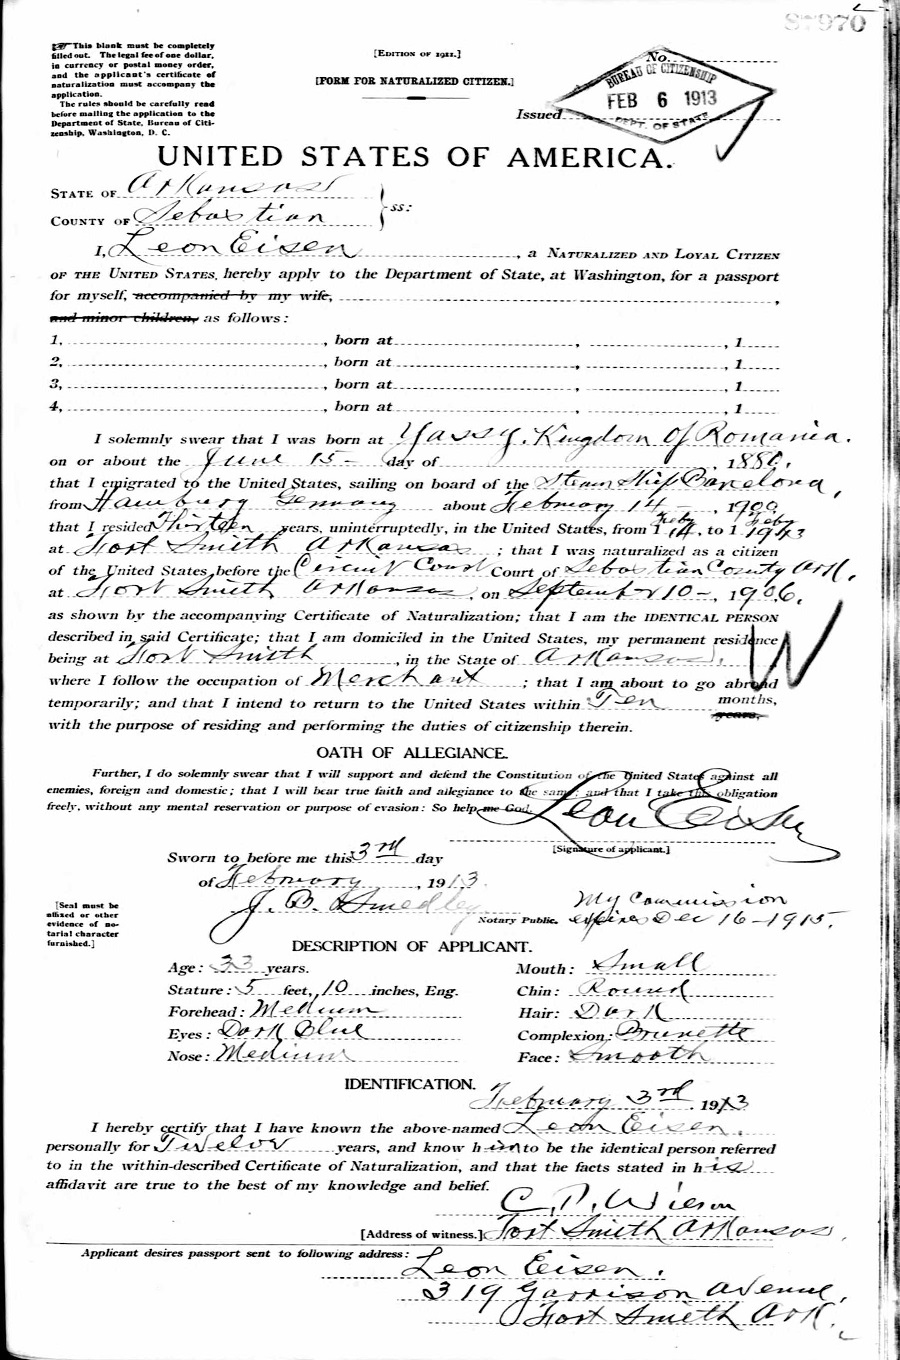 87970
☞ This blank must be completely
filled out. The legal fee of one dollar,
in currency or postal money order,
and the applicant's certificate of
naturalization must accompany the
application.
The rules should be carefully read
before mailing the application to the
Department of State, Bureau of Citi-
zenship, Washington, D. C.
[EDITION OF 1911.]
[FORM FOR NATURALIZED CITIZEN.]
No.
Issued
BUREAU OF CITIZENSHIP
FEB 6 1913
DEPT. OF STATE
UNITED STATES OF AMERICA.
STATE OF Arkansas
COUNTY OF Sebastian } ss:
I, Leon Eisen, a NATURALIZED AND LOYAL CITIZEN
OF THE UNITED STATES, hereby apply to the Department of State, at Washington, for a passport
for myself, accompanied by my wife,
and minor children, as follows:
1, , born at , , 1
2, , born at , , 1
3, , born at , , 1
4, , born at , , 1
I solemnly swear that I was born at Yassy, Kingdom of Romania.
on or about the June 15 - day of , 1880,
that I emigrated to the United States, sailing on board of the Steam Ship Barcelona,
from Hamburg Germany about February 14 -, 1900,
that I resided Thirteen years, uninterruptedly, in the United States, from 1 Feby 14, to 1 Feby 1913
at Fort Smith Arkansas ; that I was naturalized as a citizen
of the United States before the Circuit Court Court of Sebastian County Ark,
at Fort Smith Arkansas, on September 10 -, 1906,
as shown by the accompanying Certificate of Naturalization; that I am the IDENTICAL PERSON
described in said Certificate; that I am domiciled in the United States, my permanent residence
being at Fort Smith, in the State of Arkansas,
where I follow the occupation of Merchant ; that I am about to go abroad
temporarily; and that I intend to return to the United States within Ten months,
years,
with the purpose of residing and performing the duties of citizenship therein.
W
OATH OF ALLEGIANCE.
Further, I do solemnly swear that I will support and defend the Constitution of the United States against all
enemies, foreign and domestic; that I will bear true faith and allegiance to the same; and that I take this obligation
freely, without any mental reservation or purpose of evasion: So help me God.
Leon Eisen
[Signature of applicant.]
Sworn to before me this 3rd day
of February, 1913.
J. B. Smedley
Notary Public.
My Commission
expires Dec 16 - 1915.
[Seal must be
affixed or other
evidence of no-
tarial character
furnished.]
DESCRIPTION OF APPLICANT.
Age: 33 years.
Mouth: Small
Stature: 5 feet, 10 inches, Eng.
Chin: Round
Forehead: Medium
Hair: Dark
Eyes: Dark Blue
Complexion: Brunette
Nose: Medium
Face: Smooth
IDENTIFICATION.
February 3rd, 1913
I hereby certify that I have known the above-named Leon Eisen,
personally for Twelve years, and know him to be the identical person referred
to in the within-described Certificate of Naturalization, and that the facts stated in his
affidavit are true to the best of my knowledge and belief.
[Address of witness.] Fort Smith Arkansas,
Applicant desires passport sent to following address:
Leon Eisen.
319 Garrison Avenue,
Fort Smith Ark.